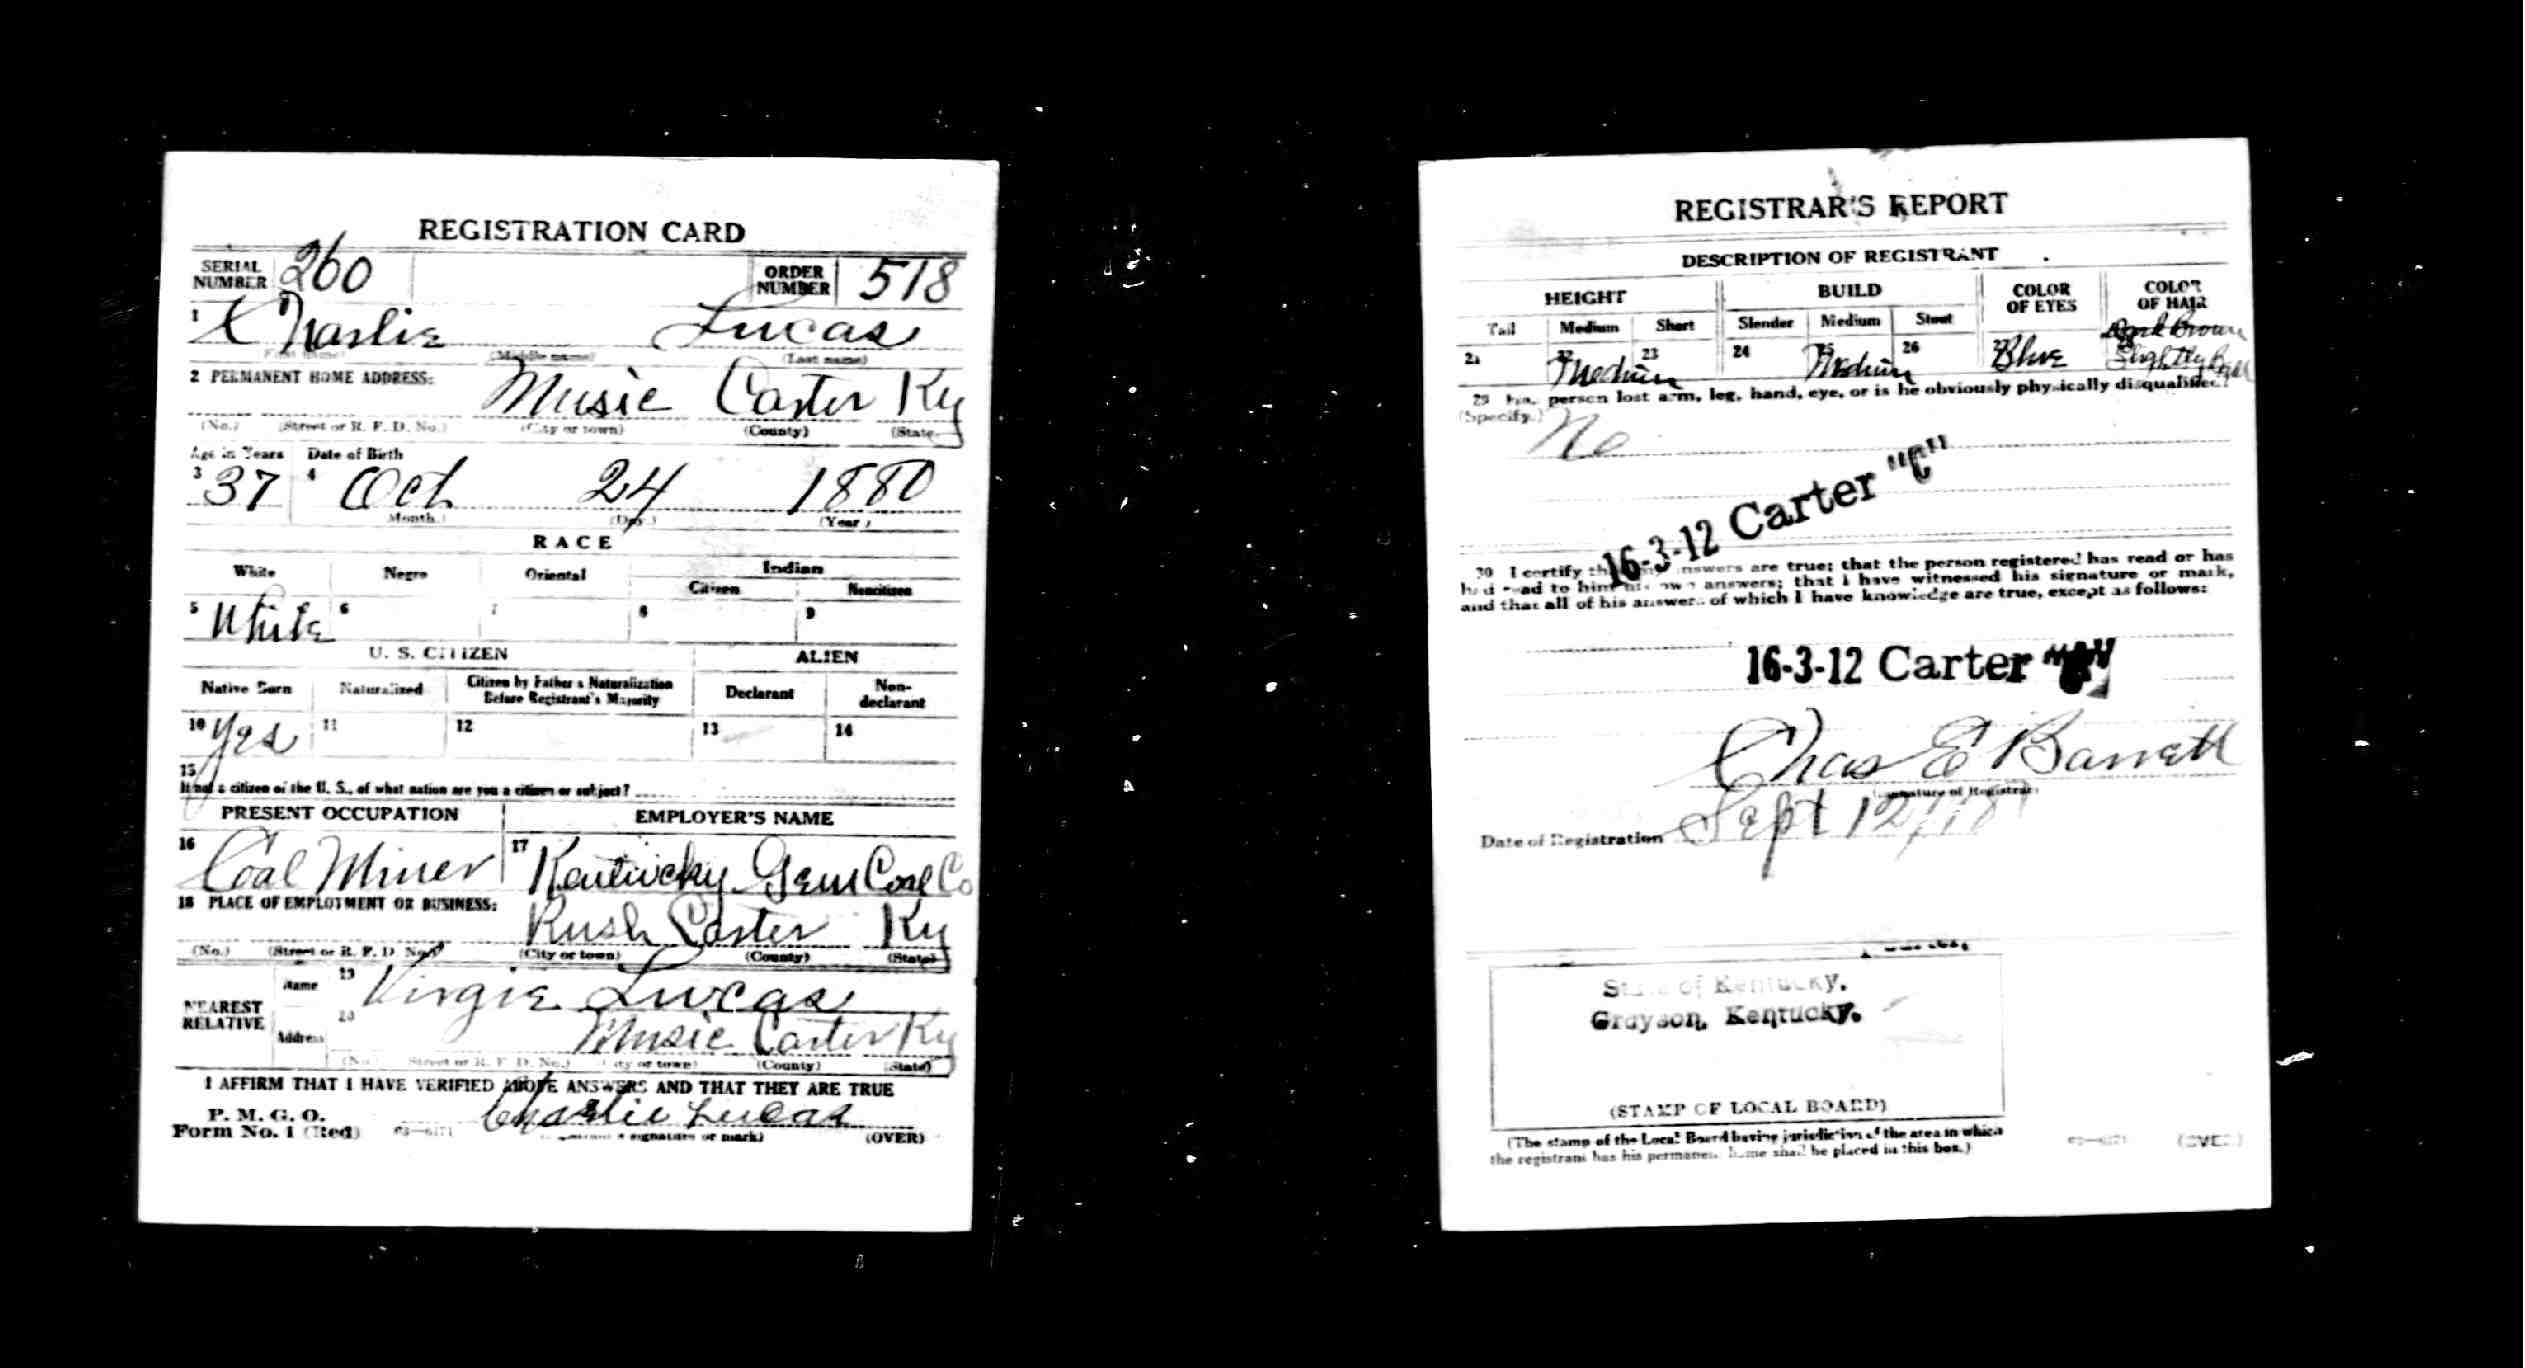 REGISTRATION CARD
SERIAL NUMBER 260 ORDER NUMBER 518
1 Charlie Lucas
(First name) (Middle name) (Last name)
2 PERMANENT HOME ADDRESS:
Music Carter Ky
(No.) (Street or R. F. D. No.) (City or town) (County) (State)
Age in Years Date of Birth
3 37 4 Oct 24 1880
(Month.) (Day.) (Year.)
RACE
White Negro Oriental Indian
Citizen Noncitizen
5 White 6 7 8 9
U. S. CITIZEN ALIEN
Native Born Naturalized Citizen by Father's Naturalization Before Registrant's Majority Declarant Non-declarant
10 Yes 11 12 13 14
15
If not a citizen of the U. S., of what nation are you a citizen or subject?
PRESENT OCCUPATION EMPLOYER'S NAME
16 Coal Miner 17 Kentucky Gem Coal Co
18 PLACE OF EMPLOYMENT OR BUSINESS:
Rush Carter Ky
(No.) (Street or R. F. D. No.) (City or town) (County) (State)
NEAREST RELATIVE Name 19 Virgie Lucas
Address 20 Music Carter Ky
(No.) (Street or R. F. D. No.) (City or town) (County) (State)
I AFFIRM THAT I HAVE VERIFIED ABOVE ANSWERS AND THAT THEY ARE TRUE
P. M. G. O.
Form No. 1 (Red) 03—6171 Charlie Lucas
signature or mark) (OVER)
REGISTRAR'S REPORT
DESCRIPTION OF REGISTRANT
HEIGHT BUILD COLOR OF EYES COLOR OF HAIR
Tall Medium Short Slender Medium Stout
21 22 Medium 23 24 25 Medium 26 27 Blue 28 Dark Brown Slightly Bald
29 Has person lost arm, leg, hand, eye, or is he obviously physically disqualified?
(Specify.)
No
16-3-12 Carter "C"
30 I certify that my answers are true; that the person registered has read or has
had read to him his own answers; that I have witnessed his signature or mark,
and that all of his answers of which I have knowledge are true, except as follows:
16-3-12 Carter
Chas E Barrett
(Signature of Registrar)
Date of Registration Sept 12/18
State of Kentucky.
Grayson, Kentucky.
(STAMP OF LOCAL BOARD)
(The stamp of the Local Board having jurisdiction of the area in which
the registrant has his permanent home shall be placed in this box.)
03—6171 (OVER)